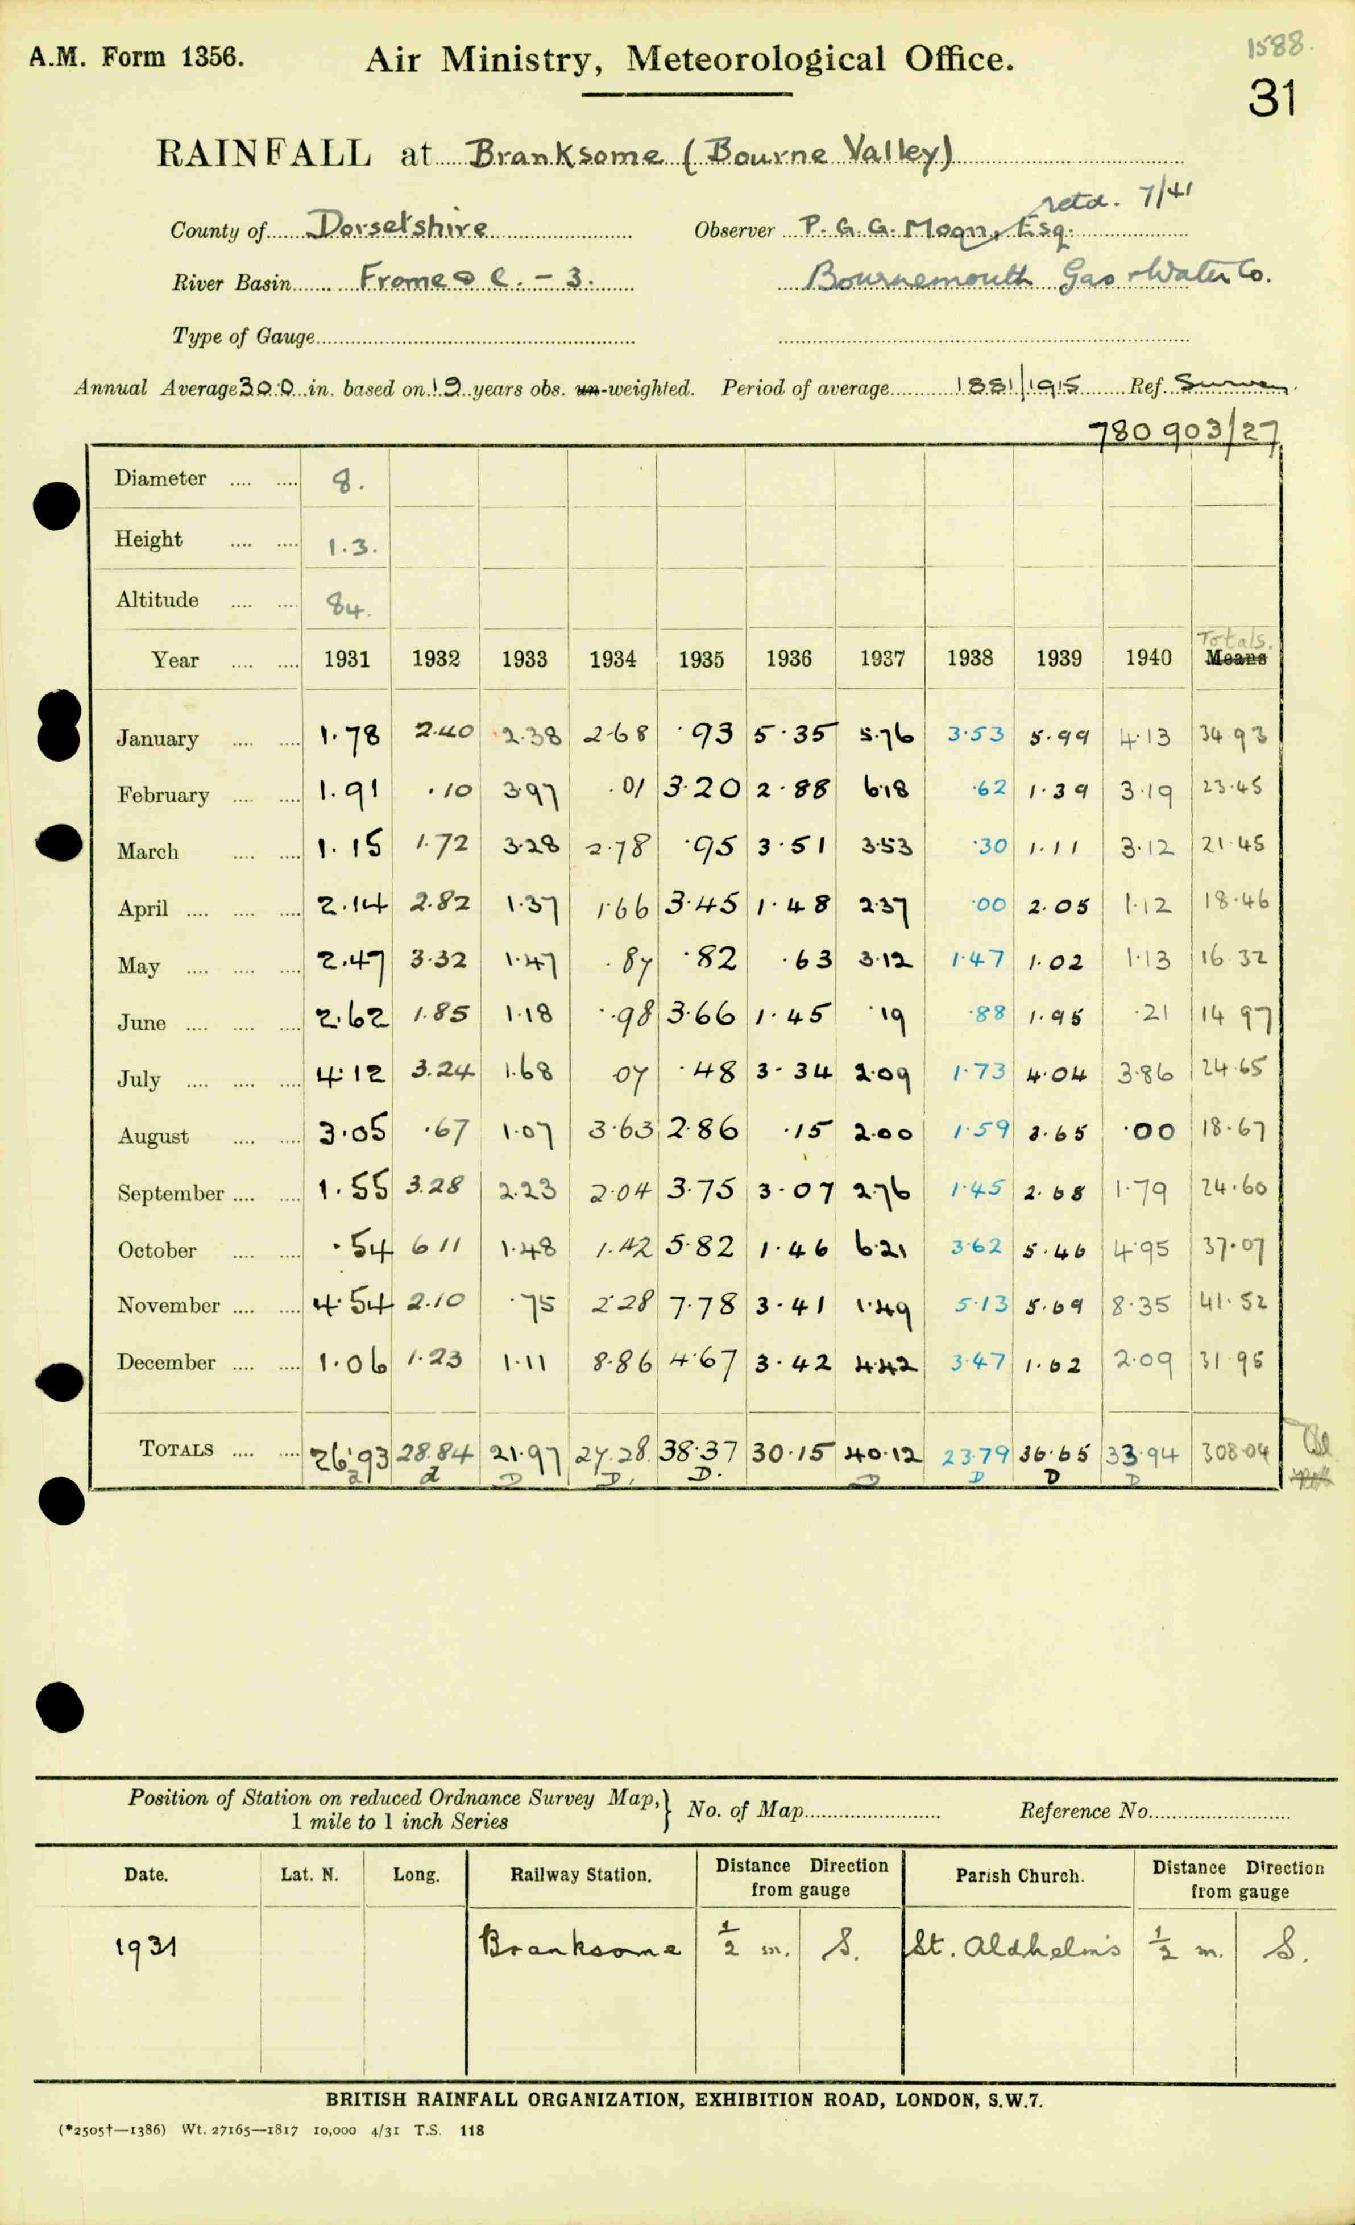 1588.
A.M. Form 1356. Air Ministry, Meteorological Office.
31
RAINFALL at Branksome (Bourne Valley)
retd. 7/41
County of Dorsetshire Observer P. G. G. Moon, Esq.
River Basin Frome &c. - 3. Bournemouth Gas & Water Co.
Type of Gauge
Annual Average 30.0 in. based on 19 years obs. un-weighted. Period of average 1881/1915 Ref. Survey
780 903/27
Diameter .... .... 8.
Height .... .... 1.3.
Altitude .... .... 84.
Totals.
Year .... .... 1931 1932 1933 1934 1935 1936 1937 1938 1939 1940 Means
January .... .... 1.78 2.40 2.38 2.68 .93 5.35 5.76 3.53 5.99 4.13 34 93
February .... .... 1.91 .10 3.97 .01 3.20 2.88 6.18 .62 1.39 3.19 23.45
March .... .... 1.15 1.72 3.28 2.78 .95 3.51 3.53 .30 1.11 3.12 21.45
April .... .... .... 2.14 2.82 1.37 1.66 3.45 1.48 2.37 .00 2.05 1.12 18.46
May .... .... .... 2.47 3.32 1.47 .87 .82 .63 3.12 1.47 1.02 1.13 16 32
June .... .... .... 2.62 1.85 1.18 .98 3.66 1.45 .19 .88 1.95 .21 14 97
July .... .... .... 4.12 3.24 1.68 07 .48 3.34 2.09 1.73 4.04 3.86 24.65
August .... .... 3.05 .67 1.07 3.63 2.86 .15 2.00 1.59 3.65 .00 18.67
September .... .... 1.55 3.28 2.23 2.04 3.75 3.07 2.76 1.45 2.68 1.79 24.60
October .... .... .54 6 11 1.48 1.42 5.82 1.46 6.21 3.62 5.46 4.95 37.07
November .... .... 4.54 2.10 .75 2.28 7.78 3.41 1.49 5.13 5.69 8.35 41.52
December .... .... 1.06 1.23 1.11 8.86 4.67 3.42 4.42 3.47 1.62 2.09 31.95
TOTALS .... .... 26.93 28.84 21.97 27.28 38.37 30.15 40.12 23.79 36.65 33.94 308.04
d D D. D. D D D D
Position of Station on reduced Ordnance Survey Map, } No. of Map Reference No.
1 mile to 1 inch Series
Date. Lat. N. Long. Railway Station. Distance Direction from gauge Parish Church. Distance Direction from gauge
1931 Branksome 1/2 m. S. St. Aldhelm's 1/2 m. S.
BRITISH RAINFALL ORGANIZATION, EXHIBITION ROAD, LONDON, S.W.7.
(*2505†—1386) Wt. 27165—1817 10,000 4/31 T.S. 118